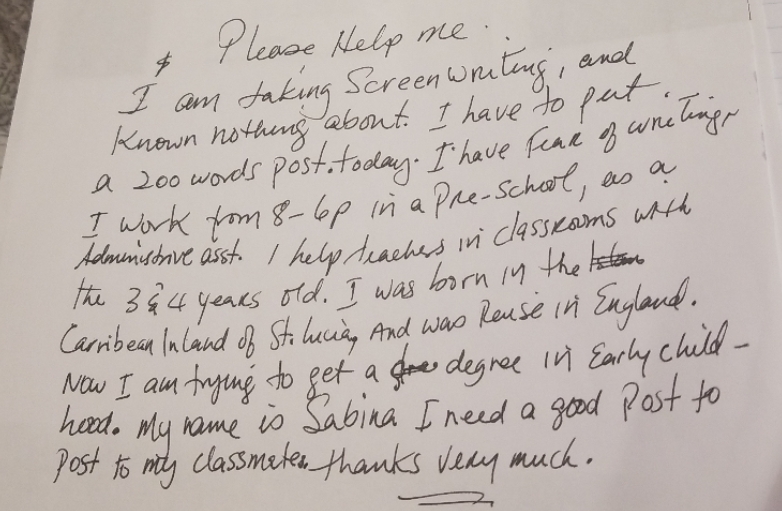 Please Help me.
I am taking Screenwriting, and
Known nothing about. I have to put
a 200 words post.today. I have Fear of writing,
I work from 8-6p in a Pre-School, as a
Administrive asst. I help teachers in classrooms with
the 3 & 4 years old. I was born in the
Carribean Inland of St. lucia, And was Reuse in England.
Now I am trying to get a degree in Early child-
hood. My name is Sabina I need a good Post to
Post to my classmates. thanks very much.